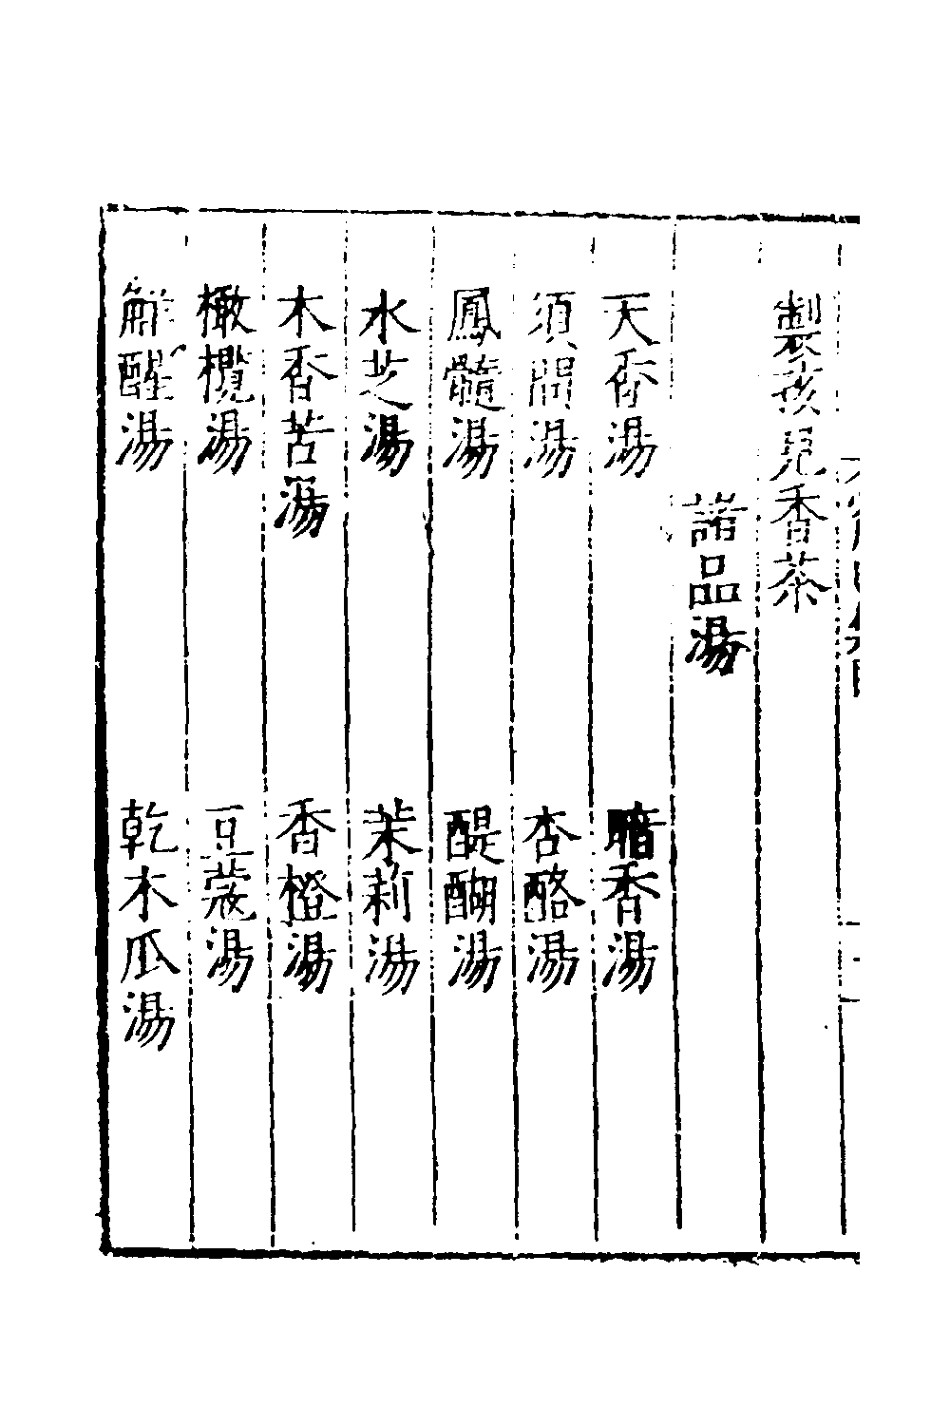 製孩兒香茶
諸品湯
天香湯　暗香湯
須問湯　杏酪湯
鳳髓湯　醍醐湯
水芝湯　茉莉湯
木香苦湯　香橙湯
橄欖湯　豆蔻湯
解酲湯　乾木瓜湯